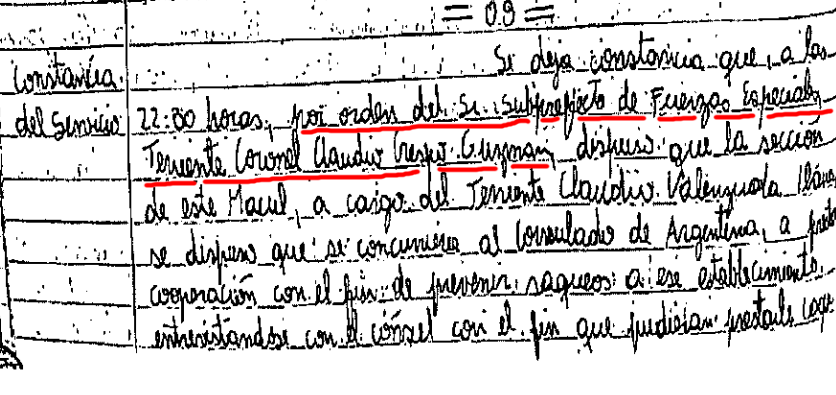 = 09 =
Se deja constancia que, a las
Constancia
del Servicio 22:00 horas, por orden del Sr. Subprefecto de Fuerzas Especiales,
Teniente Coronel Claudio Crespo Guzman, dispuso que la sección
de este Macul, a cargo del Teniente Claudio Valenzuela
se dispuso que se concurriera al Consulado de Argentina, a
cooperación con el fin de prevenir saqueos a ese establecimiento
entrevistandose con el cónsul con el fin que pudieran prestarle